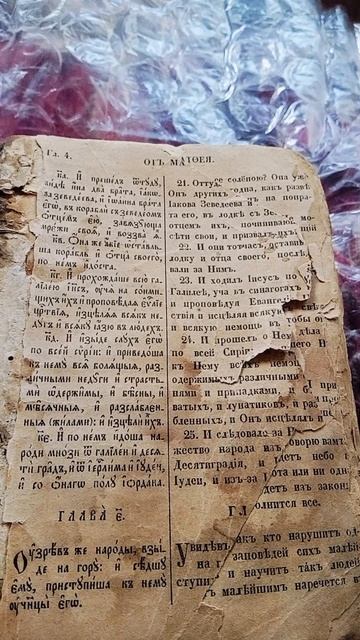 Гл. 4.
ОТЪ МАТѲЕЯ.
к҃а. И҆ прешедъ ѿтꙋдꙋ,
ви́дѣ и҆́на два̀ бра̑та, і҆а́кѡва
заведеева, и҆ і҆ѡа́нна бра́та
є҆гѡ̀, въ кораблѝ съ заведеомъ
ѻ҆тце́мъ є҆ю̀, завѧзꙋюща
мре́жи своѧ̑, и҆ воззва̀ ѧ҆̀.
к҃в. Ѻ҆на́ же а҆́бїе ѡ҆ста́вль-
ша кора́бль и҆ ѻ҆тца̀ своего̀,
по не́мъ и҆до́ста.
к҃г. И҆ прохожда́ше всю̀ га-
лїле́ю і҆и҃съ, ᲂу҆чѧ̀ на со́нми-
щихъ и҆́хъ и҆ проповѣ́даѧ є҆ѵⷢ҇лїе
црⷭ҇твїѧ, и҆сцѣлѧ́ѧ всѧ́къ не-
дꙋ́гъ и҆ всѧ́кꙋ ꙗ҆́зю въ лю́дехъ.
к҃д. И҆ и҆зы́де слꙋ́хъ є҆гѡ̀
по все́й сѷрі́и: и҆ приведо́ша
къ немꙋ̀ всѧ̑ болѧ́щыѧ, раз-
ли́чными недꙋ̑ги и҆ страстьмѝ
ѡ҆держи̑мы, и҆ бѣ̑сны, и҆
мѣ́сѧчныѧ, и҆ разсла́блен-
ныѧ (жи́лами): и҆ и҆зцѣлѝ и҆̀хъ.
к҃е. И҆ по не́мъ и҆до́ша на-
ро́ди мно́зи ѿ галїле́и и҆ десѧ-
ти гра̑дъ, и҆ ѿ і҆ерⷭ҇ли́ма и҆ і҆ꙋде́и,
и҆ со ѻ҆́нагѡ по́лꙋ і҆ѻрда́на.
ГЛАВА̀ Є҃.
Оу҆зрѣ́въ же наро́ды, взы́-
де на го́рꙋ: и҆ сѣ́дшꙋ
є҆мꙋ̀, пристꙋпи́ша къ немꙋ̀
ᲂу҆чн҃цы̀ є҆гѡ̀.
21. солёною? Она уже
Онъ другихъ годна, какъ развѣ
Іакова Зеведеева и на попра-
та его, въ лодкѣ съ Зе
отцемъ ихъ,
сѣти свои, и призвалъ ихъ
22. И они тотчасъ, оставивъ
лодку и отца своего, послѣдо-
вали за Нимъ.
23. И ходилъ Іисусъ по
Галилеѣ, уча въ синагогахъ
и проповѣдуя Евангеліе
ствія и исцѣляя всякую
и всякую немощь въ
24. И прошелъ о Немъ
по всей Сиріи
къ Нему всѣхъ немощ
одержимыхъ различными
нями и припадками, и
ватыхъ, и лунатиковъ, и раз
бленныхъ, и Онъ исцѣлялъ
25. И слѣдовало за говорю вамъ:
жество народа изъ
Десятиградія, и небо
Іудеи, и изъ-за ота или ни одна
изъ закона
олнится все.
Увидѣвъ акъ кто нарушитъ од-
на г заповѣдей сихъ малѣй-
ступи и научитъ такъ людей
малѣйшимъ наречется въ